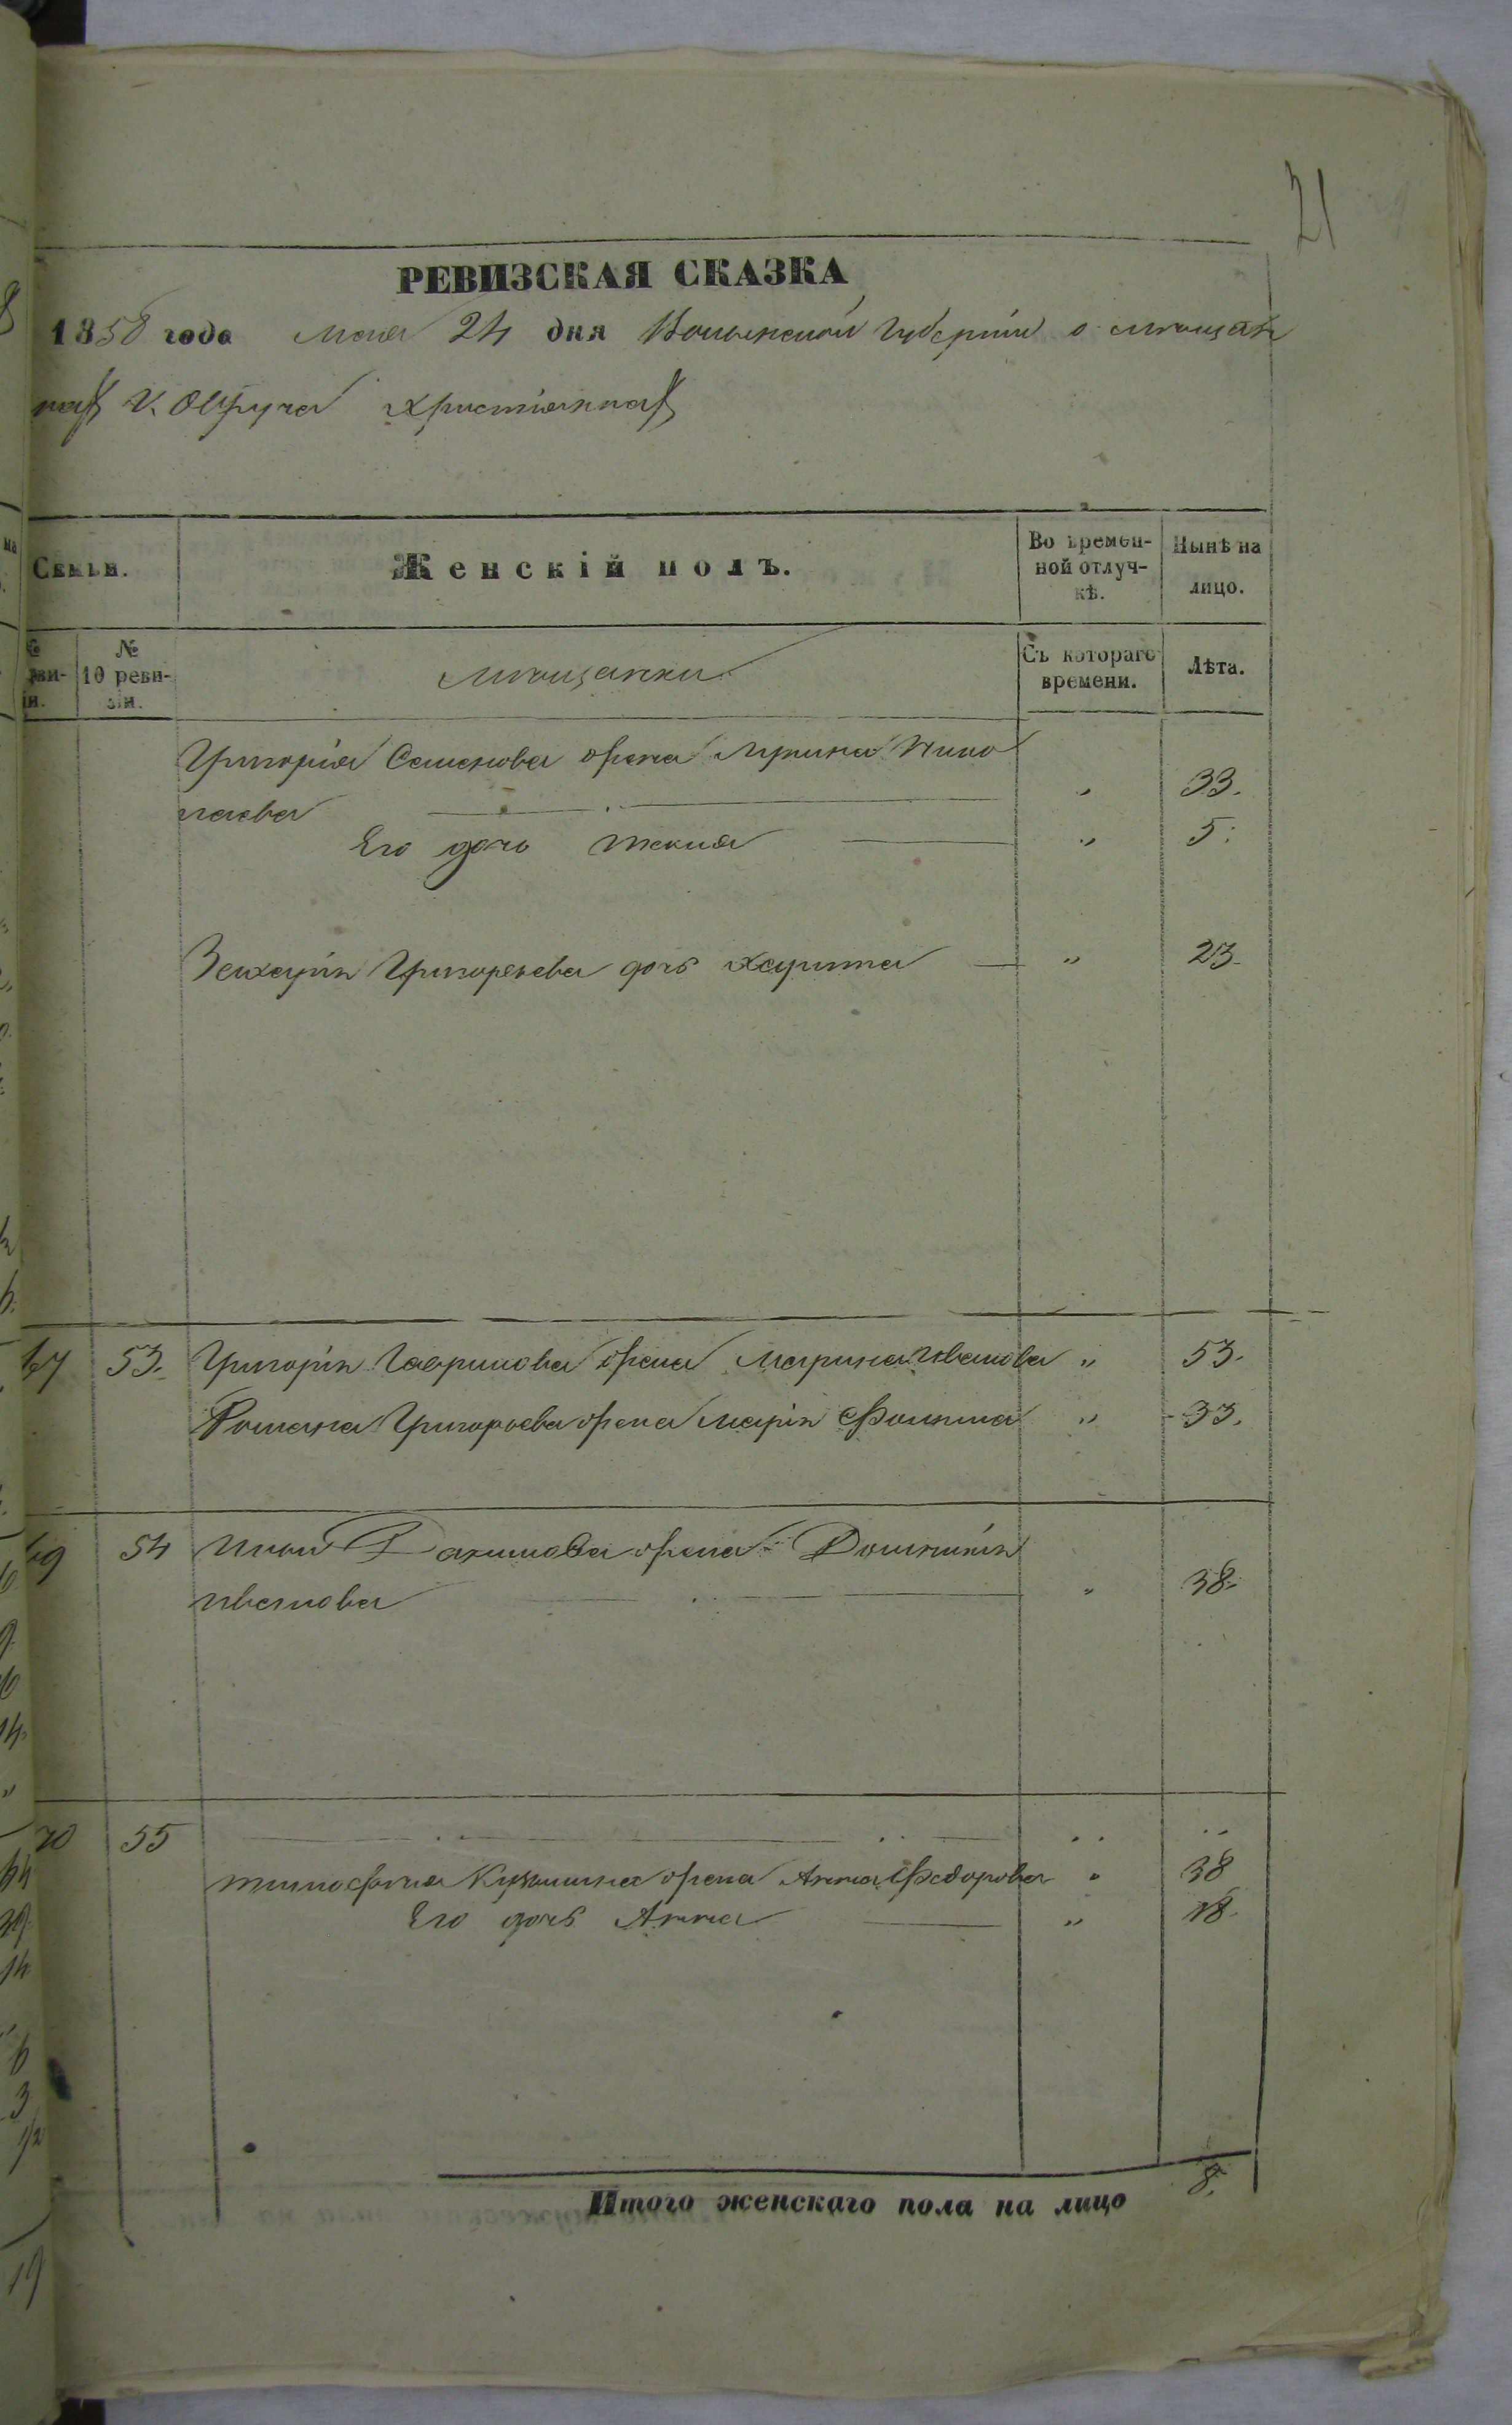 21
РЕВИЗСКАЯ СКАЗКА
1858 года Мая 24 дня Волынской Губерніи о мѣщан
нах г. Овруча христіаннах
Семьи.
Женскій полъ.
Во времен-
ной отлуч-
кѣ.
Нынѣ на
лицо.
№
ви-
іи.
№
10 реви-
зіи.
мѣщанки
Съ котораго
времени.
Лѣта.
Григорія Семенова жена Ирина Нико
лаева " 33.
Его дочь Текля " 5.
Захарія Григорьева дочь Харита " 23.
67 53. Григорія Гаврилова жена Марина Иванова " 53.
Романа Григорьева жена Марія Фомина " 33.
69 54 Якимова жена Домникія
Иванова " 38.
70 55
Тимофея Кузьмина жена Анна Федорова " 38
Его дочь Анна " 18.
Итого женскаго пола на лицо 8.